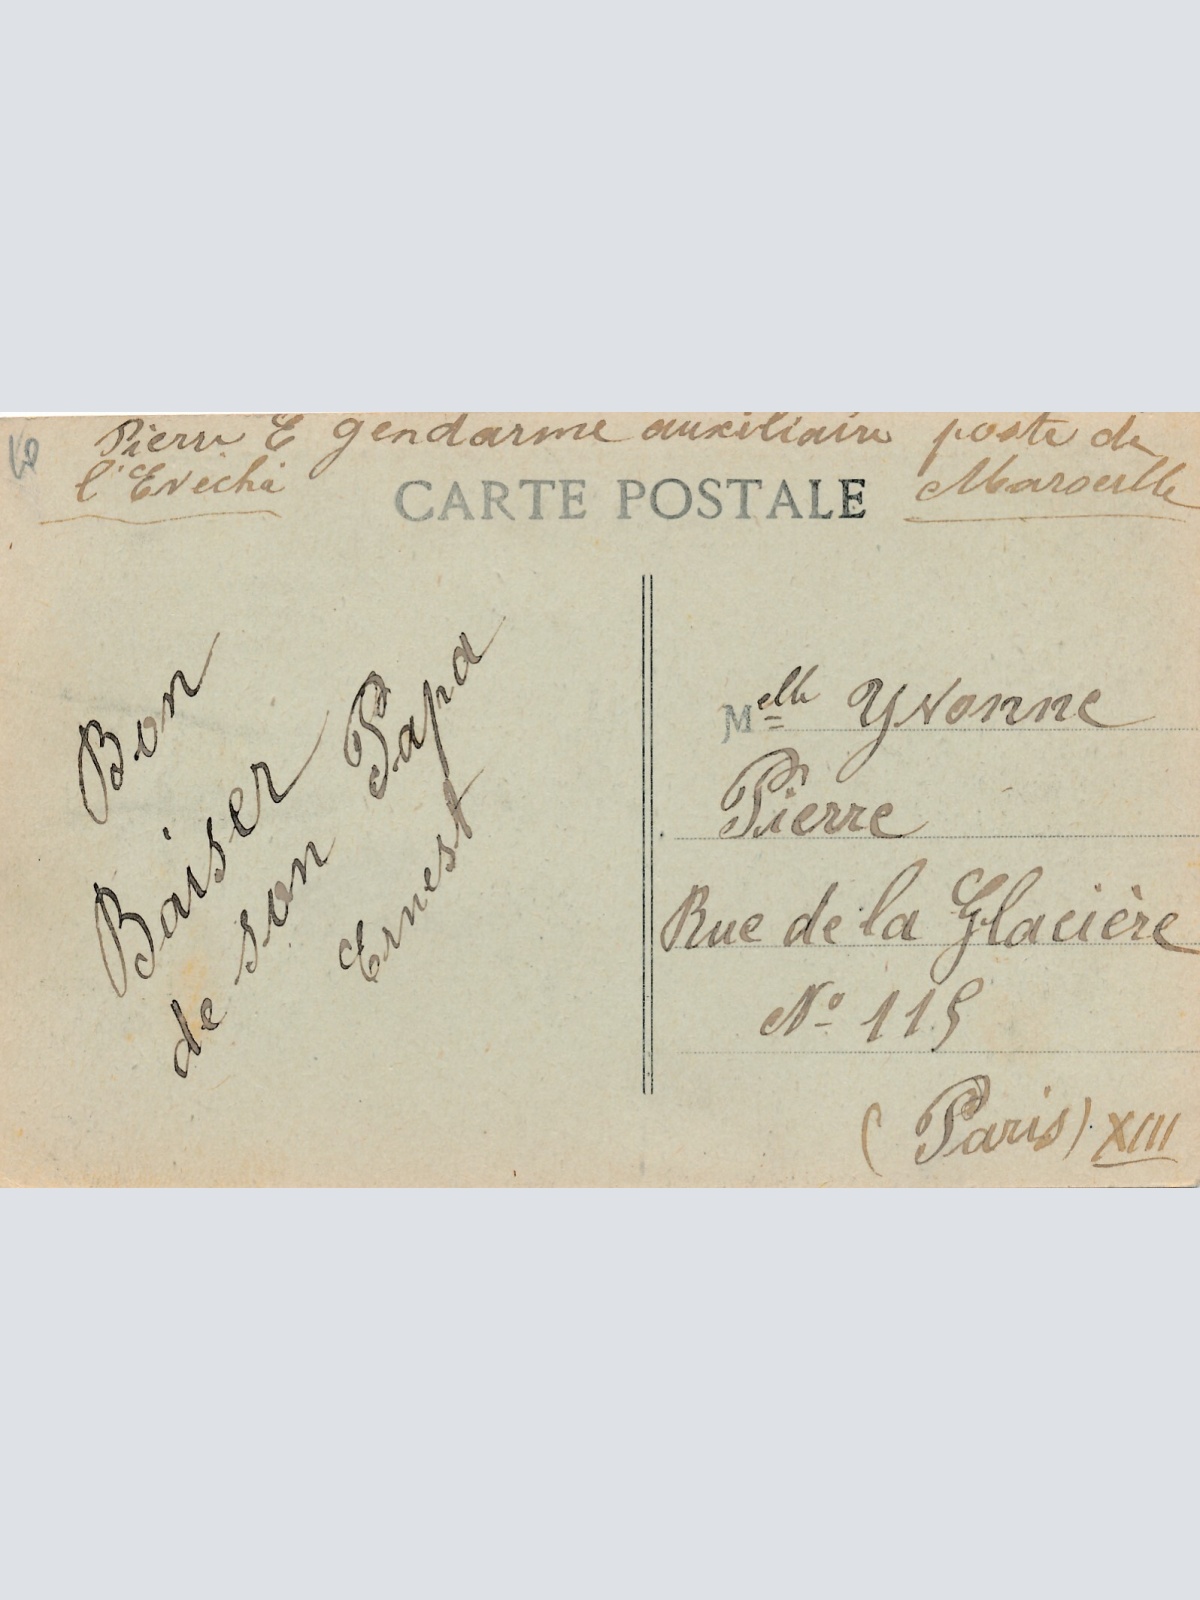 Pierre E gendarme auxiliaire poste de
l'Evêché
Marseille
CARTE POSTALE
Bon
Baiser
de son Papa
Ernest
Melle Yvonne
Pierre
Rue de la Glacière
No 115
(Paris) XIII